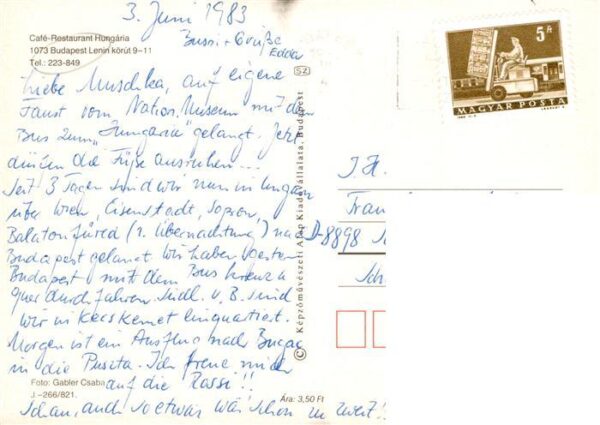 3. Juni 1983
Bussi + Grüße
Café-Restaurant Hungária
1073 Budapest Lenin körút 9–11
Tel.: 223-849
Liebe Muschka, auf eigene
Faust vom Nation. Museum mit dem
Bus zum "Hungaria" gelangt. Jetzt
dürfen die Füße ausruhen...
Seit 3 Tagen sind wir nun in Ungarn
über Wien, Eisenstadt, Sopron,
Balatonfüred (1. Übernachtung) nach
Budapest gelangt. Wir haben gestern
Budapest mit dem Bus kreuz u
quer durchfahren. Südl. v. B. sind
wir in Kecskemet einquartiert.
Morgen ist ein Ausflug nach Bugac
in die Puszta. Ich freue mich
auf die Rassi!!
Schau, auch so etwas wär schon zu zweit!
Foto: Gabler Csaba
J.–266/821.
Ára: 3,50 Ft
SZ
© Képzőművészeti Alap Kiadóvállalata, Budapest
5 Ft
MAGYAR POSTA
Fran
D-8898
Sch